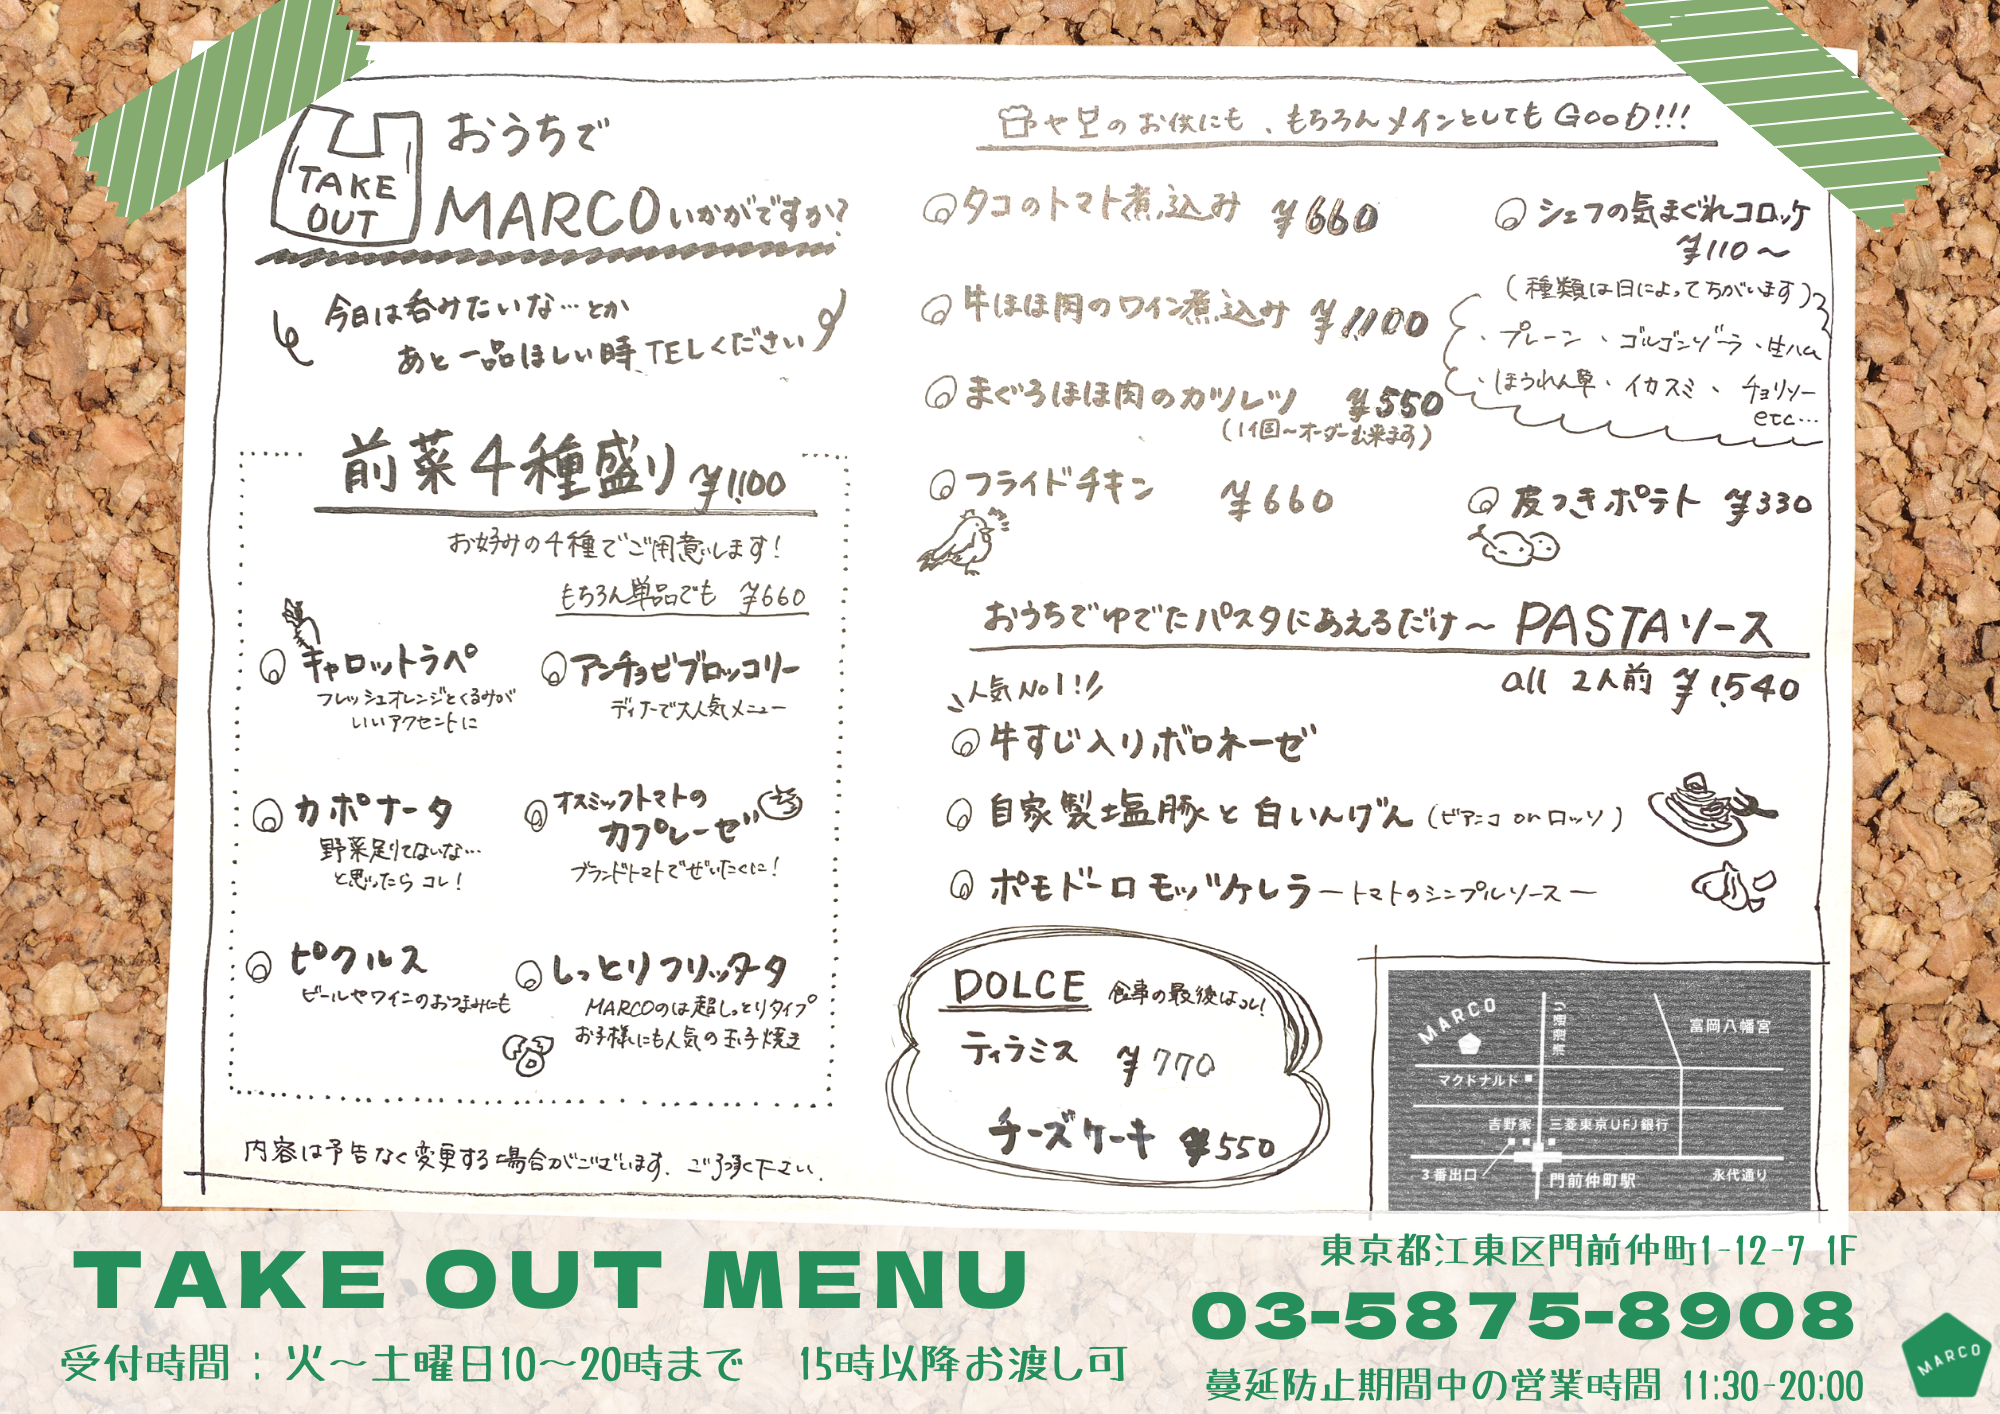 TAKE
OUT
おうちで
MARCOいかがですか?
今日は呑みたいな…とか
あと一品ほしい時、TELください
前菜4種盛り ¥1,100
お好みの4種でご用意します!
もちろん単品でも ¥660
キャロットラペ
フレッシュオレンジとくるみが
いいアクセントに
アンチョビブロッコリー
ディナーで大人気メニュー
カポナータ
野菜足りてないな…
と思ったらコレ!
オスミックトマトの
カプレーゼ
ブランドトマトでぜいたくに!
ピクルス
ビールやワインのおつまみにも
しっとりフリッタータ
MARCOのは超しっとりタイプ
お子様にも人気の玉子焼き
内容は予告なく変更する場合がございます。ご了承下さい。
や のお供にも、もちろんメインとしてもGOOD!!!
タコのトマト煮込み ¥660
牛ほほ肉のワイン煮込み ¥1,100
まぐろほほ肉のカツレツ ¥550
(1個~オーダー出来ます)
フライドチキン ¥660
シェフの気まぐれコロッケ
¥110~
(種類は日によってちがいます)
・プレーン・ゴルゴンゾーラ・生ハム
・ほうれん草・イカスミ・チョリソー
etc…
皮つきポテト ¥330
おうちでゆでたパスタにあえるだけ~ PASTAソース
all 2人前 ¥1,540
人気No1!!
牛すじ入りボロネーゼ
自家製塩豚と白いんげん(ビアンコ or ロッソ)
ポモドーロモッツァレラ ートマトのシンプルソースー
DOLCE 食事の最後はコレ!
ティラミス ¥770
チーズケーキ ¥550
MARCO
富岡八幡宮
マクドナルド
吉野家
三菱東京UFJ銀行
3番出口
門前仲町駅
永代通り
TAKE OUT MENU
受付時間:火~土曜日10~20時まで 15時以降お渡し可
東京都江東区門前仲町1-12-7 1F
03-5875-8908
蔓延防止期間中の営業時間 11:30-20:00
MARCO